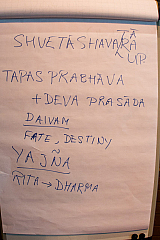 SHVETĀSHAVATĀRA
UP.
TAPAS PRABHĀVA
+ DEVA PRASĀDA
DAIVAM
FATE, DESTINY
YAJÑA
RITA → DHARMA